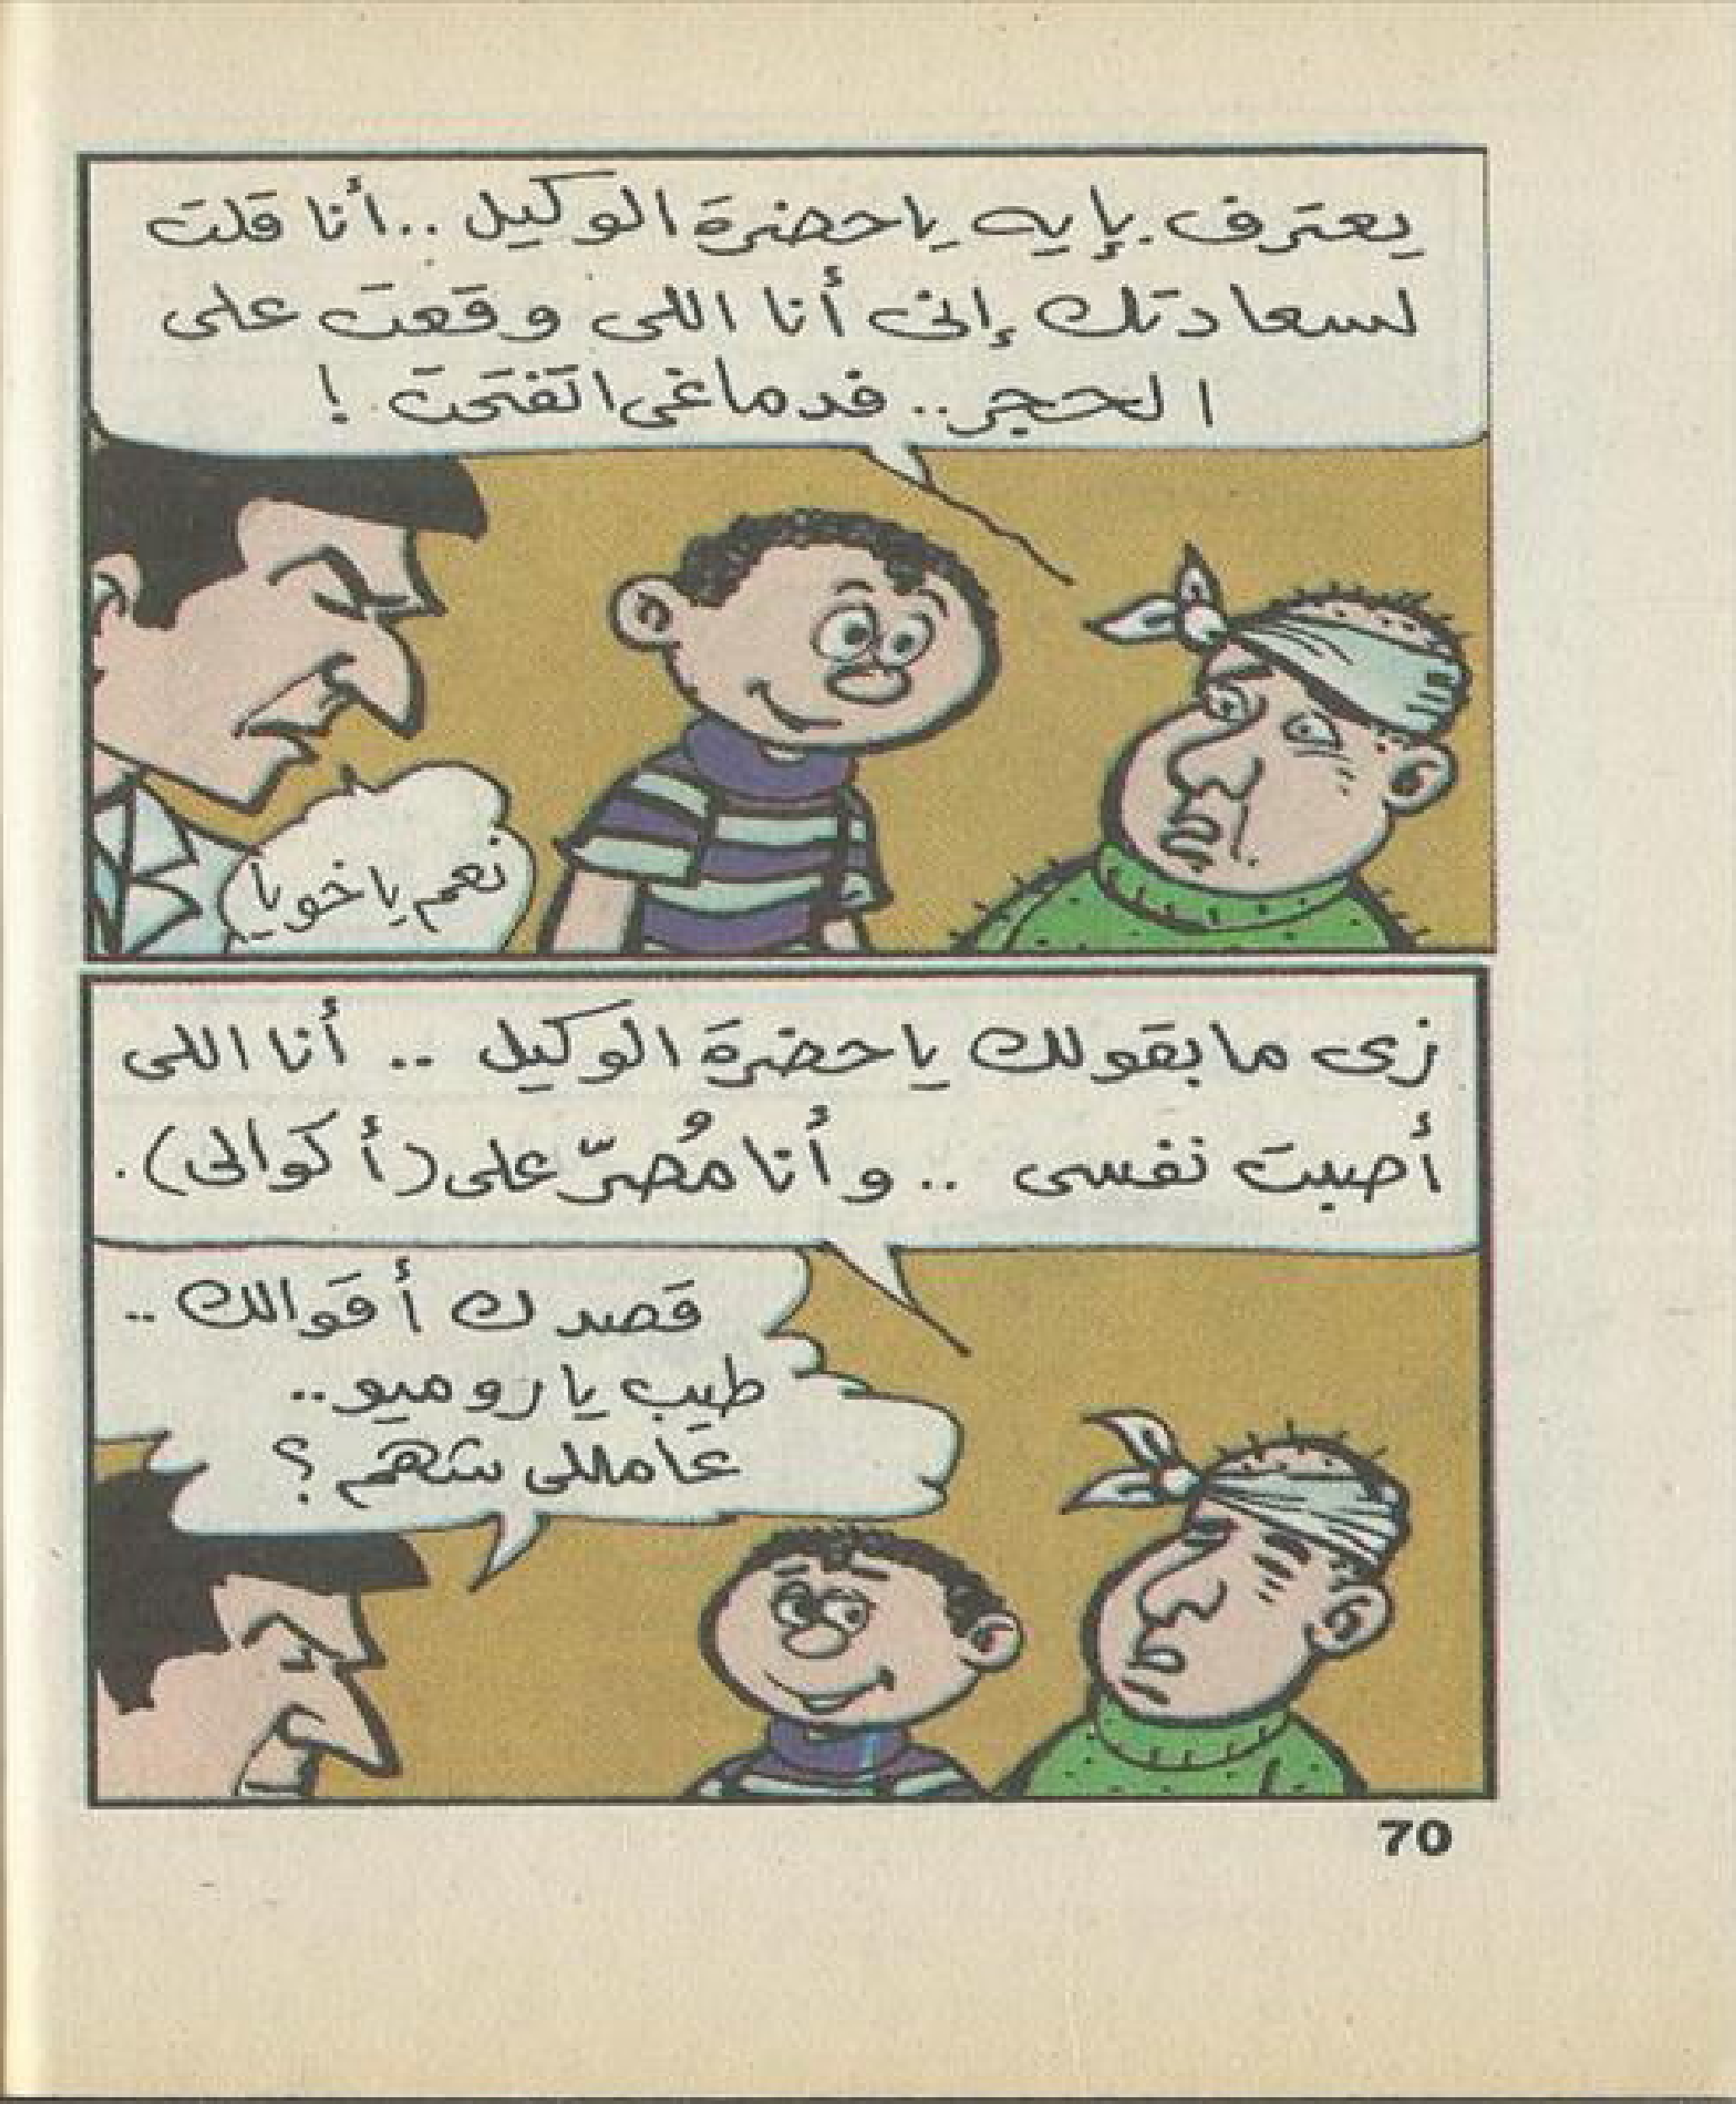 يعترف بإيه يا حضرة الوكيل .. أنا قلت
لسعادتك إنى أنا اللى وقعت على
الحجر .. فدماغى اتفتحت !
نعم ياخويا
زى ما بقولك يا حضرة الوكيل .. أنا اللى
أصبت نفسى .. وأنا مُصرّ على (أكوالى).
قصدك أقوالك ..
طيب يا روميو ..
عاملى شهم ؟
70